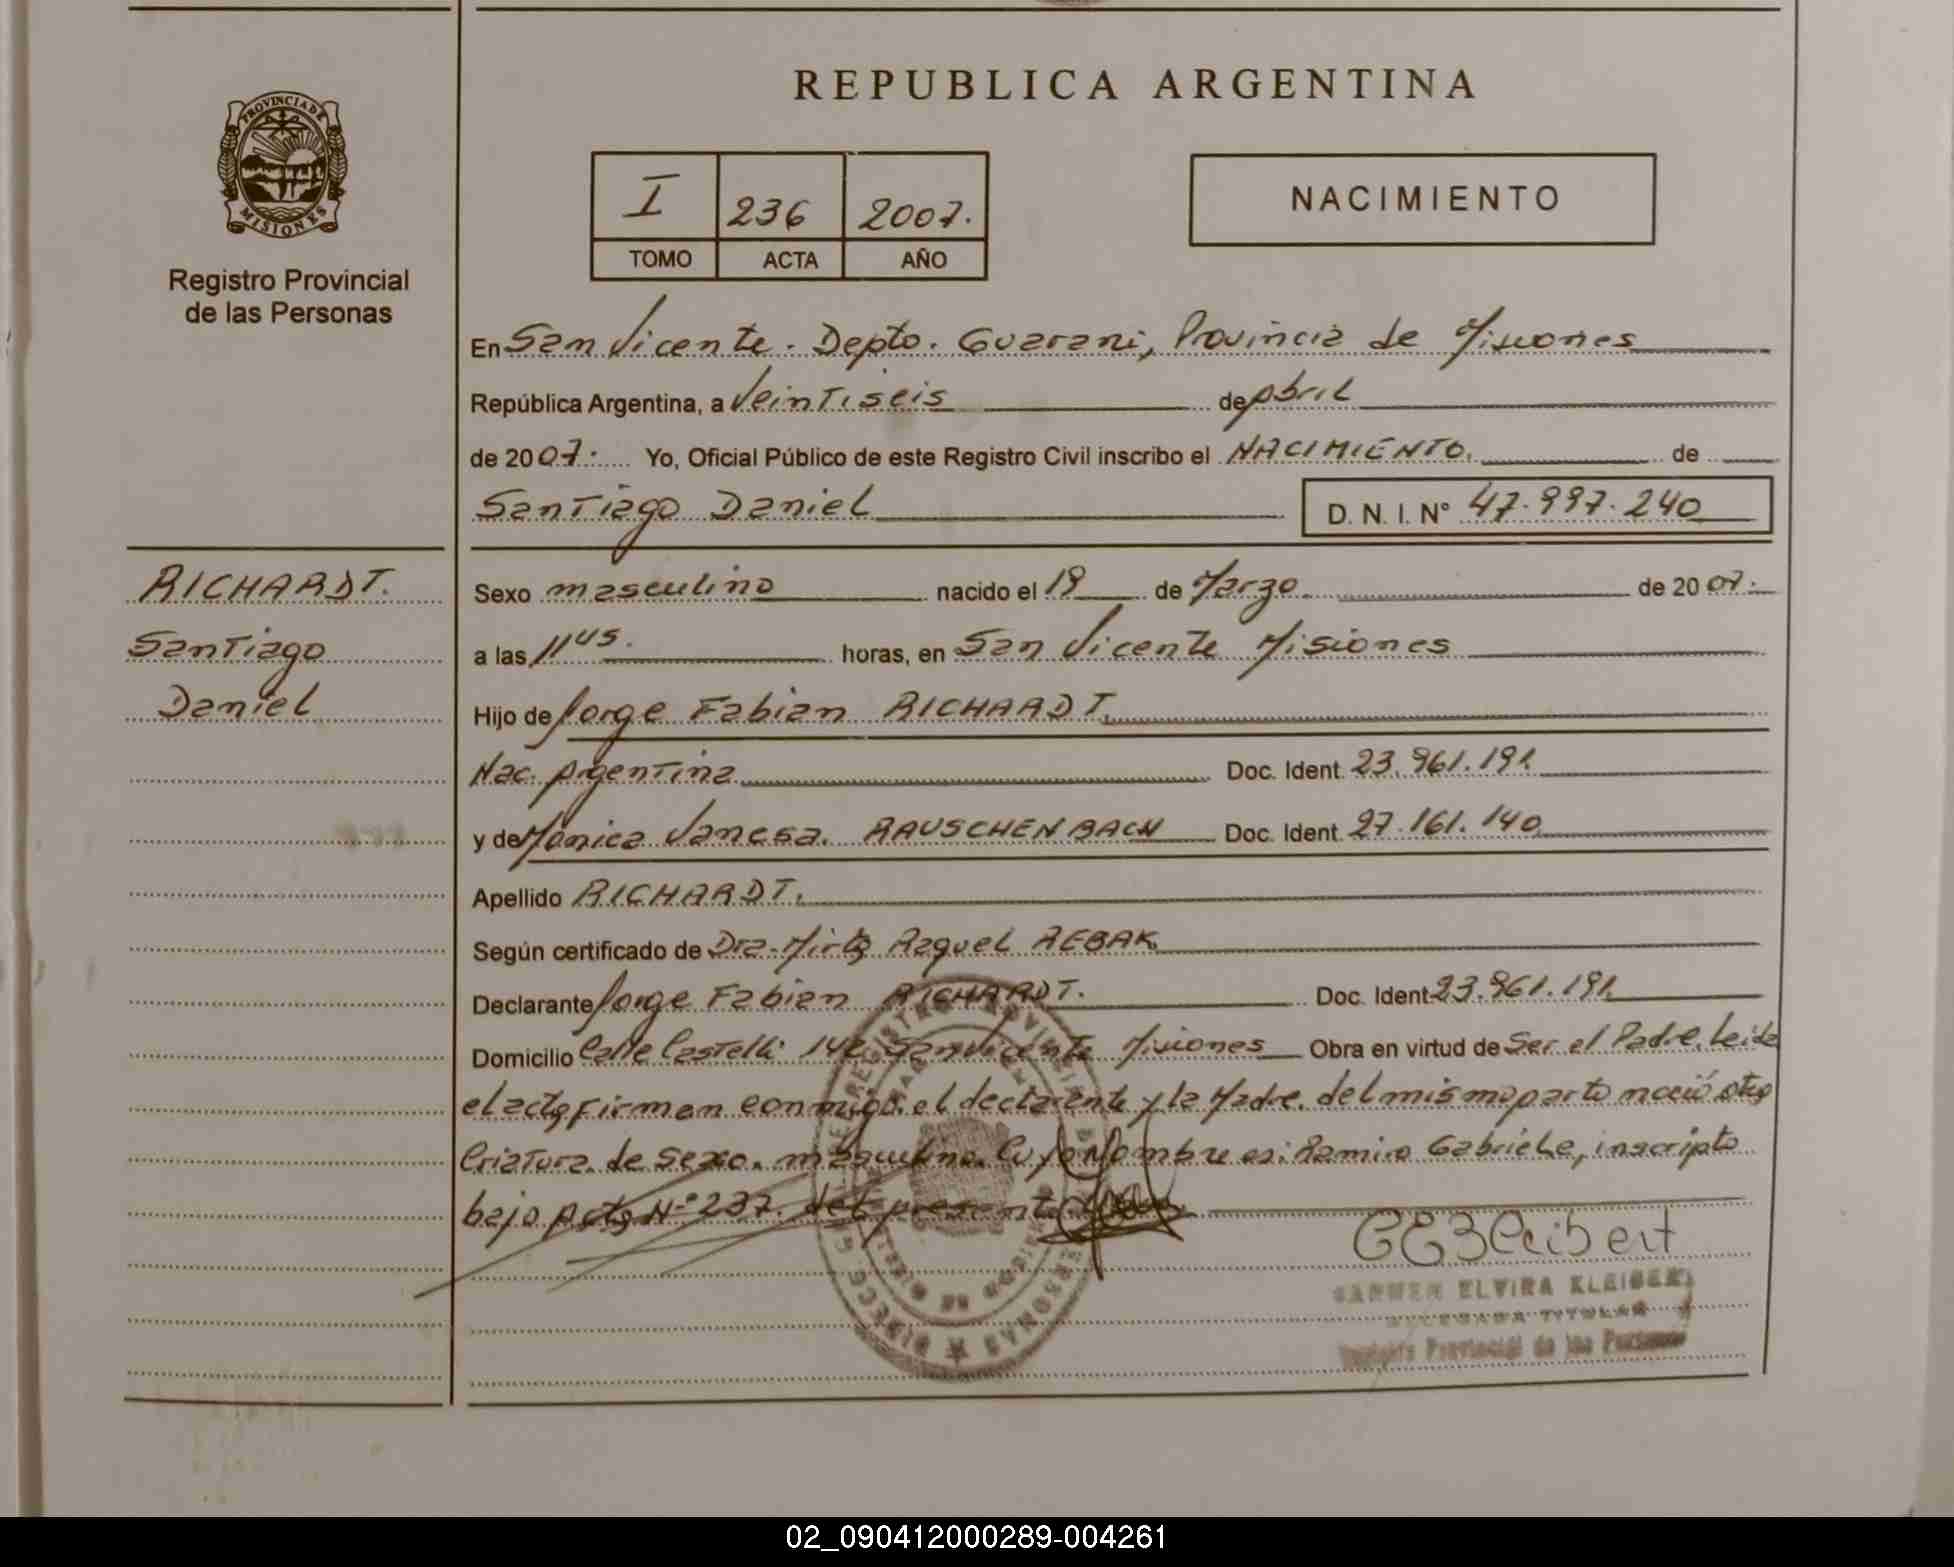 REPUBLICA ARGENTINA
PROVINCIA DE
MISIONES
Registro Provincial
de las Personas
I 236 2007.
TOMO ACTA AÑO
NACIMIENTO
En San Vicente. Depto. Guarani, Provincia de Misiones
República Argentina, a Veintiseis de Abril
de 2007. Yo, Oficial Público de este Registro Civil inscribo el NACIMIENTO. de
Santiago Daniel D. N. I. N° 47.997.240
RICHARDT.
Santiago
Daniel
Sexo masculino nacido el 19 de Marzo. de 2007.
a las 11 45. horas, en San Vicente Misiones
Hijo de Jorge Fabian RICHARDT.
Nac. Argentina Doc. Ident. 23.961.191
y de Mónica Vanesa. RAUSCHENBACH Doc. Ident. 27.161.140
Apellido RICHARDT.
Según certificado de Dra. Mirta Raquel REBAK
Declarante Jorge Fabian RICHARDT. Doc. Ident. 23.961.191
Domicilio Calle Castelli 142 San Vicente Misiones Obra en virtud de Ser el Padre. Leida
el acta firman conmigo. el declarante y la Madre. del mismo parto nació otra
Criatura de sexo. masculino. Cuyo Nombre es: Ramiro Gabriel, inscripto
bajo Acta N° 237. del presente
CARMEN ELVIRA KLEIBER
DELEGADA TITULAR
Registro Provincial de las Personas
02_090412000289-004261